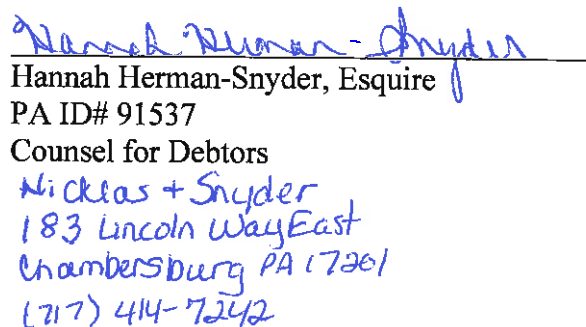 Hannah Herman-Snyder
Hannah Herman-Snyder, Esquire
PA ID# 91537
Counsel for Debtors
Nicklas + Snyder
183 Lincoln Way East
Chambersburg PA 17201
(717) 414-7242